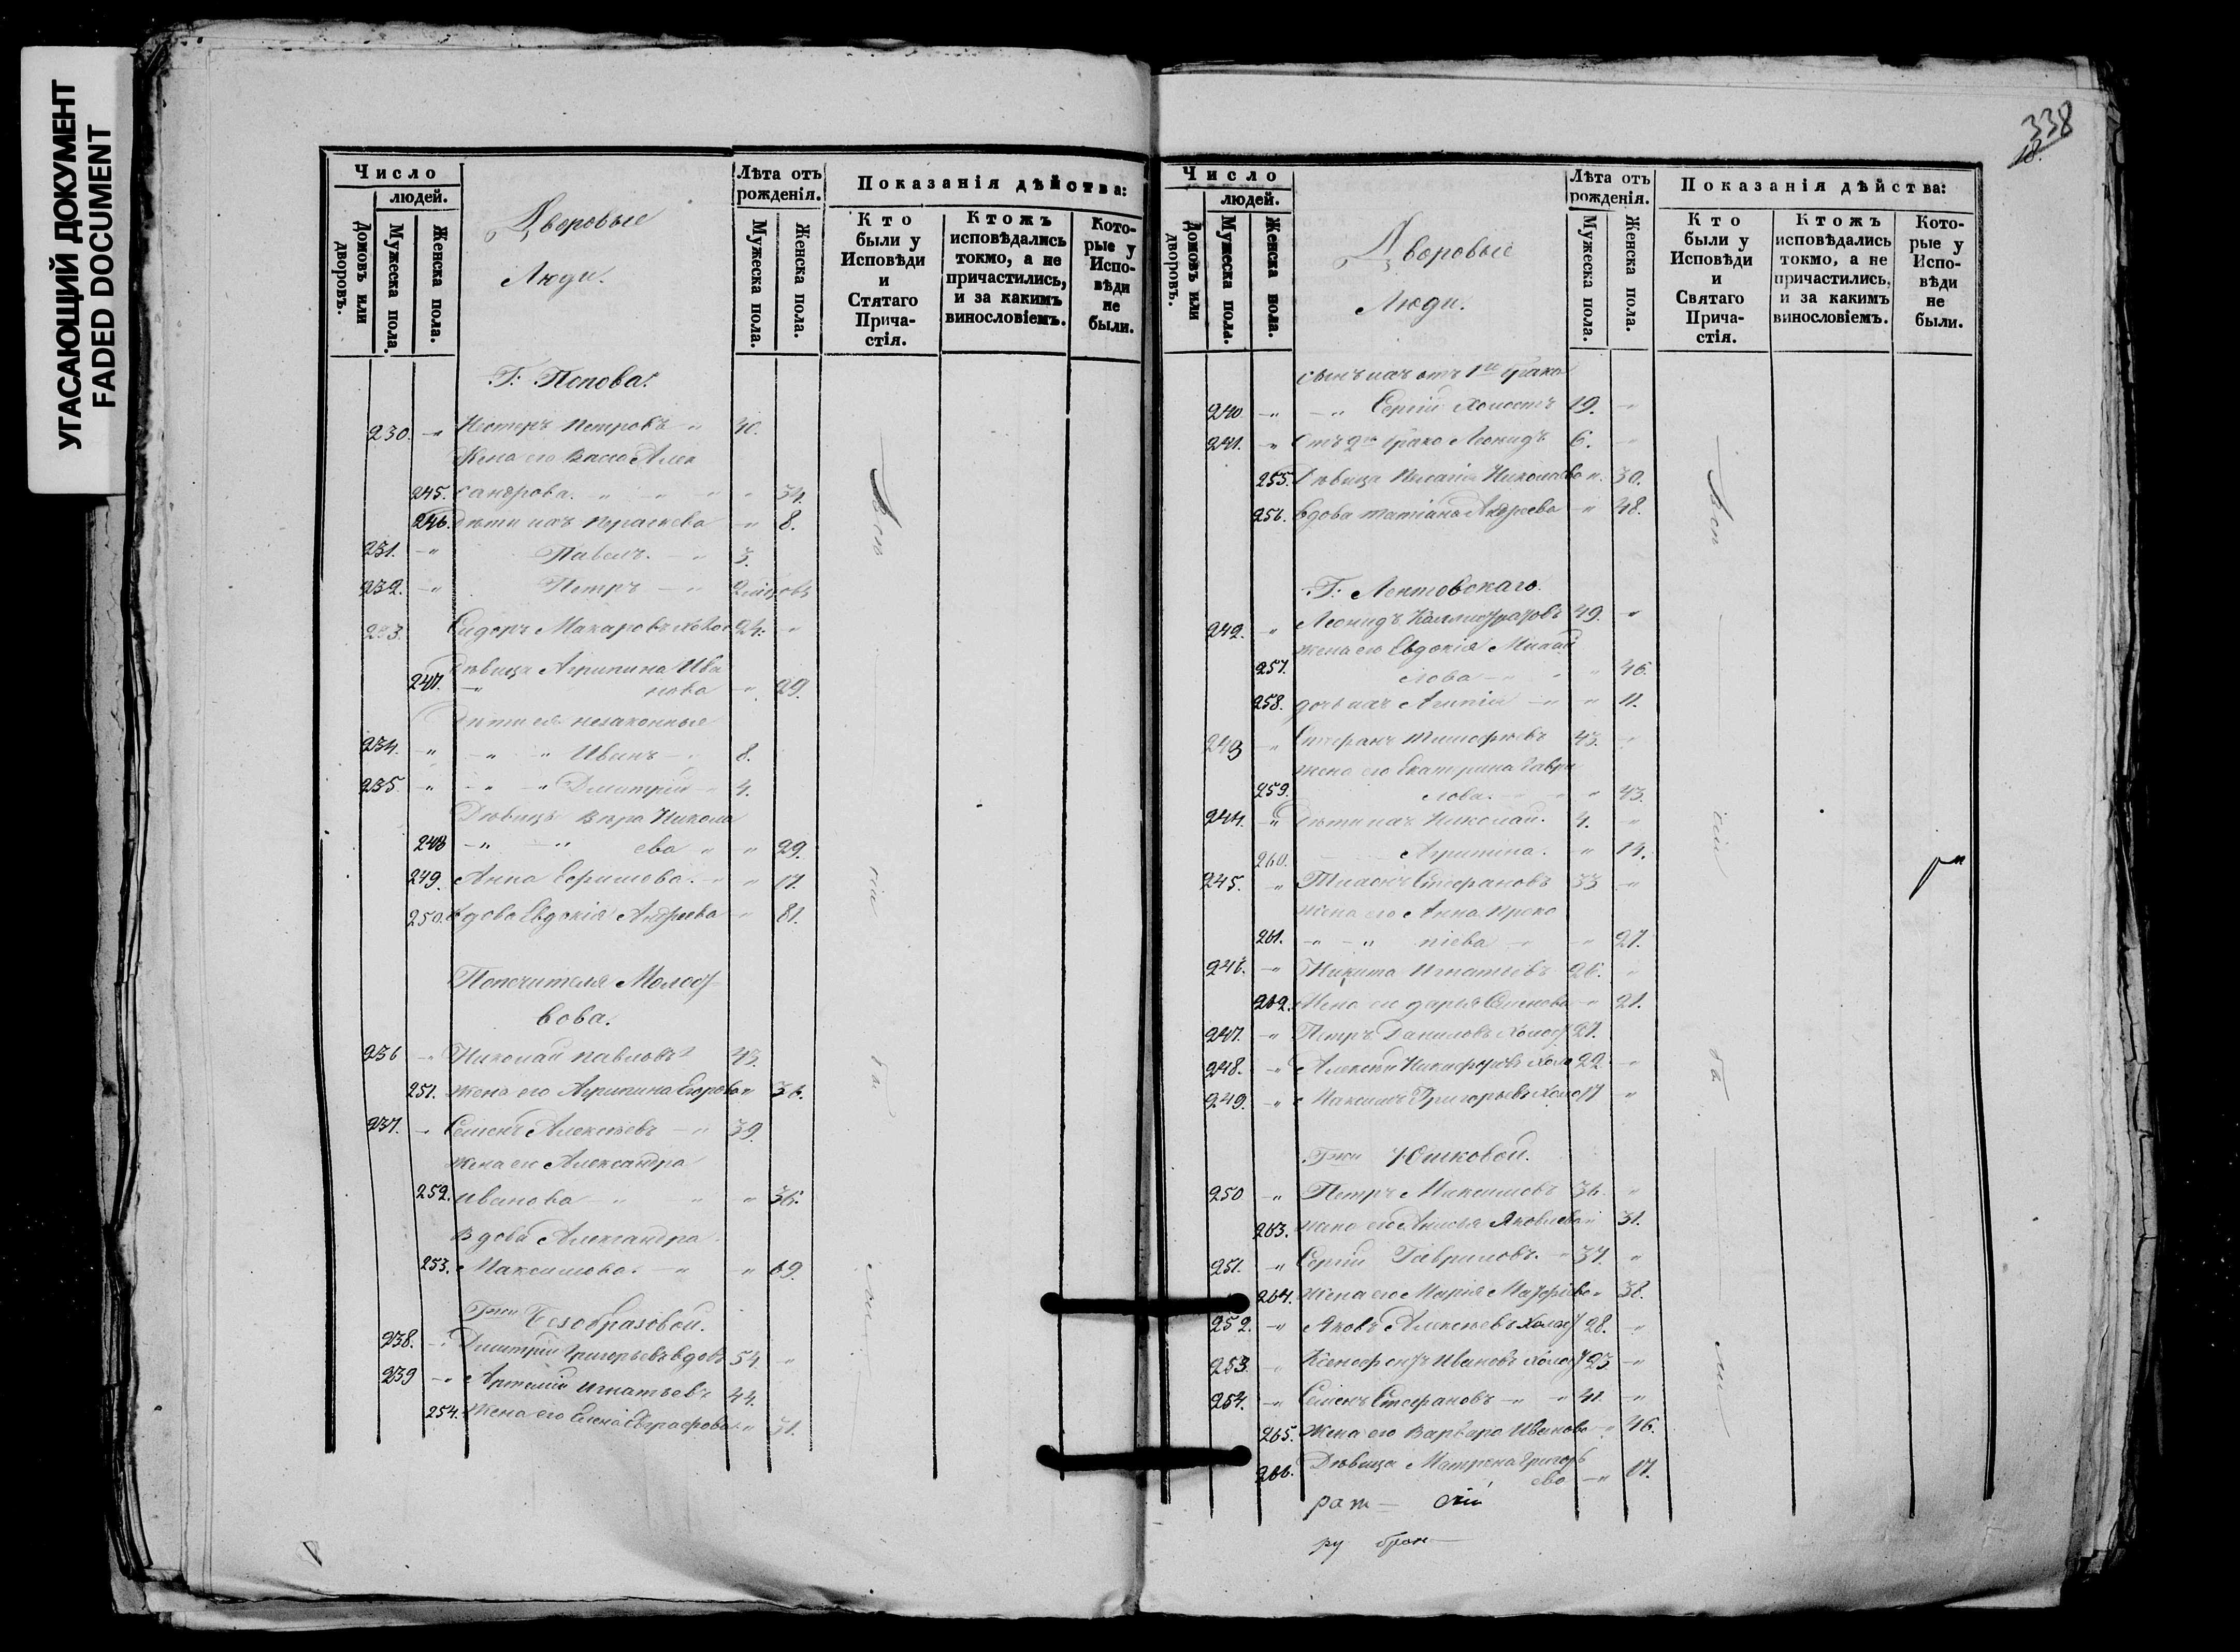 УГАСАЮЩИЙ ДОКУМЕНТ
FADED DOCUMENT
Число
людей.
Домовъ или дворовъ.
Мужеска пола.
Женска пола.
Дворовые
Люди.
Лѣта отъ рожденія.
Мужеска пола.
Женска пола.
Показанія дѣйства:
Кто были у Исповѣди и Стятаго Прича-стія.
Ктожъ исповѣдались токмо, а не причастились, и за какимъ винословіемъ.
Кото-рые у Испо-вѣди не были.
Г: Попова.
230. " Несторъ Петровъ " 40.
Жена его Васса Алек
245. сандрова. " " " " 34.
246. Дѣти ихъ Параскева " 8.
231. " Павелъ. " 3.
232. " Петръ " 2 мѣсяцовъ
233. Сидоръ Макаровъ холос 24. "
Дѣвица Агрипина Ива
247. " нова " 29.
Дѣти ея незаконные
234. " " " Иванъ " 8.
235. " " " Дмитрій " 4.
Дѣвица Вѣра Никола
248 " " ева " " 29.
249. Анна Ефимова. " " 17.
250. вдова Евдокія Андреева " 81.
Попечителя Молос
вова.
236 " Николай Павловъ 43.
251. жена его Агрипина Егорова " 36.
237. " Семенъ Алексѣевъ " 39.
жена его Александра
252. Иванова " " " 36.
Вдова Александра
253. Максимова. " " 69.
Гжи Безобразовой.
238. " Дмитрій Григорьевъ вдовъ 54. "
239 " Артемій Игнатьевъ 44.
254. Жена его Елена Евграфова " 31.
338
18.
Число
людей.
Домовъ или дворовъ.
Мужеска пола.
Женска пола.
Дворовые
Люди.
Лѣта отъ рожденія.
Мужеска пола.
Женска пола.
Показанія дѣйства:
Кто были у Исповѣди и Святаго Прича-стія.
Ктожъ исповѣдались токмо, а не причастились, и за какимъ винословіемъ.
Кото-рые у Испо-вѣди не были.
сынъ ихъ отъ 1го брака
240 " " Сергій Холостъ 19. "
241. " отъ 2го брака Леонидъ 6. "
255. Дѣвица Николаева " 30.
256. вдова Татіана Андреева " 48.
Г: Лентовскаго.
242. " Леонидъ 49. "
жена его Евдокія Михай
257. лова " " 46.
258. дочь ихъ " " 11.
243 " Стефанъ Тимофеевъ 43. "
жена его Екатерина Гаври
259. лова. " " 43.
244. " Дѣти ихъ Николай. 4. "
260. Агрипина. " 14.
245. " Стефановъ 33 "
жена его Анна Проко
261. " " піева " " 27.
246. " Никита Игнатьевъ 26. "
262. Жена его Дарья Семенова " 21.
247. " Петръ Даниловъ Холост 27.
248. " Алексѣй Никифоровъ Холо 22. "
249. " Максимъ Григорьевъ Холо 17 "
Гжи Юшковой.
250 " Петръ Максимовъ 36. "
263. жена его Анисья Яковлева " 31.
251. " Сергій Гавриловъ. " 37. "
264. Жена его Марія " 38.
252. " Яковъ Алексѣевъ Холост 28. "
253. " Ксенофонтъ Ивановъ холост 23 "
254. " Семенъ Стефановъ " " 41 "
265. Жена его Варвара Иванова " 46.
266. Дѣвица Матрена Григорь
ева " 17.